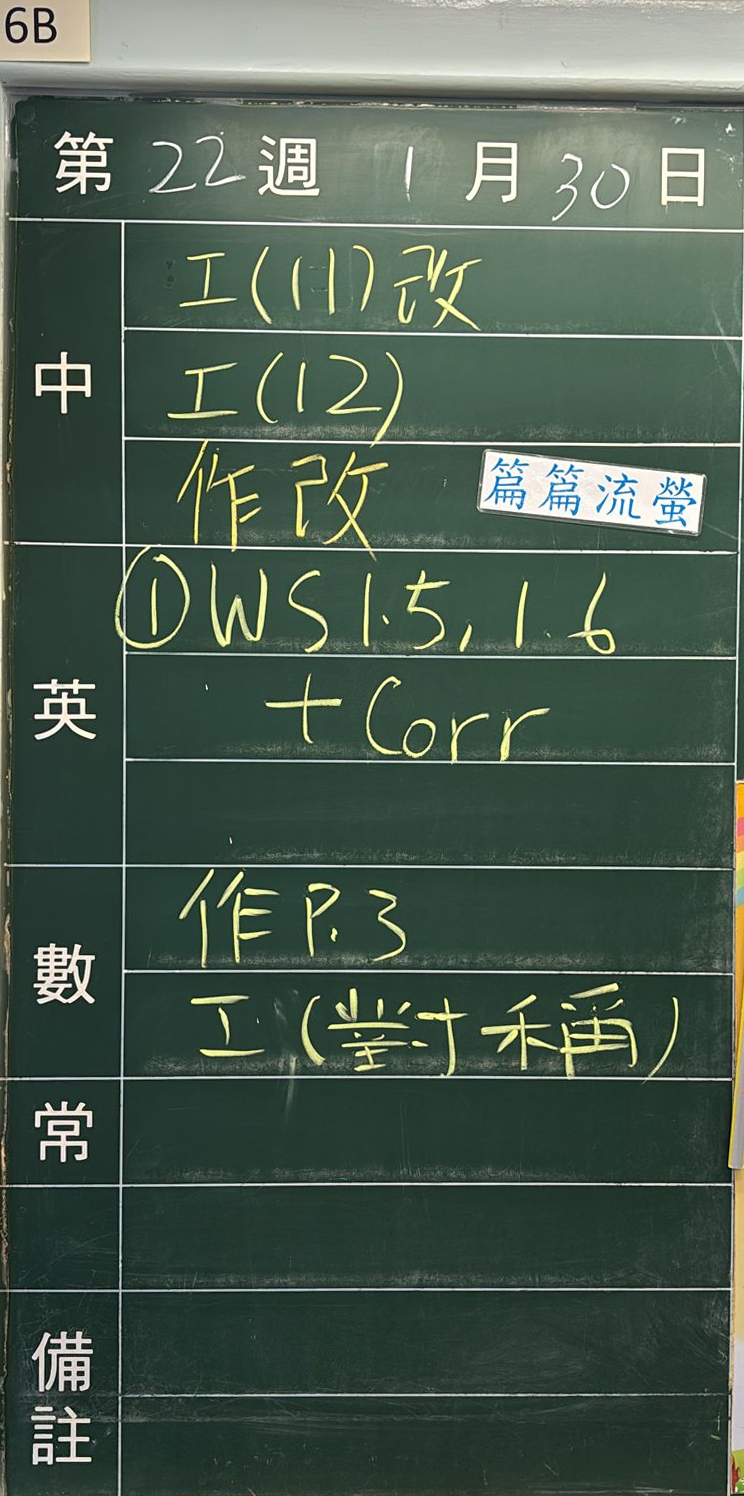 6B
第 22 週 1 月 30 日
中
工(11)改
工(12)
作改 篇篇流螢
英
①WS1.5, 1.6
+Corr
數
作P.3
工(對稱)
常
備註